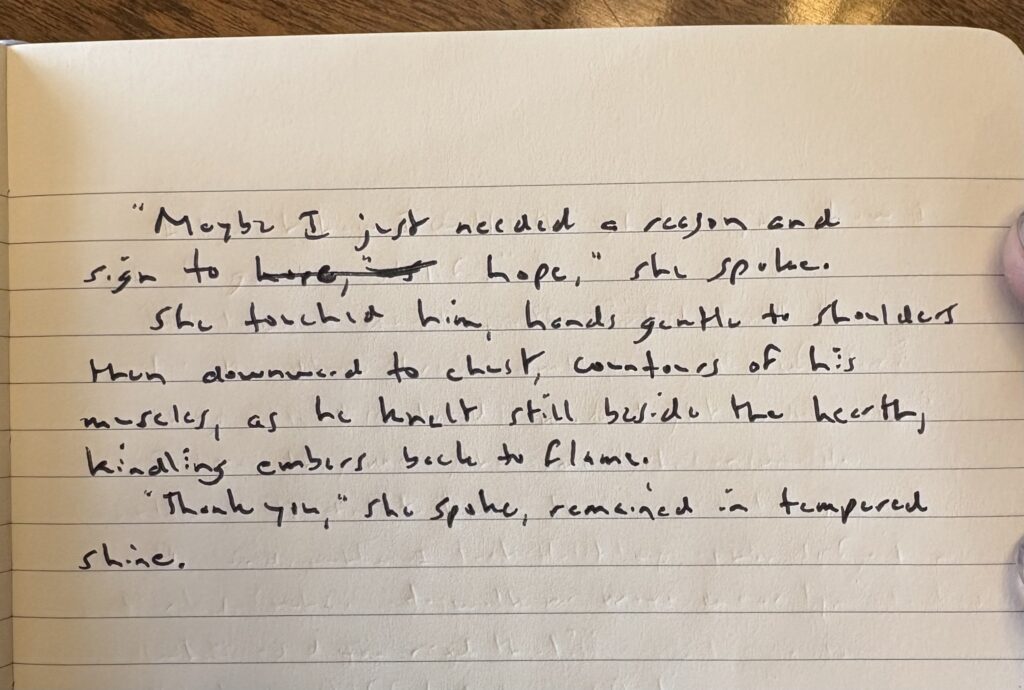 "Maybe I just needed a reason and
sign to hope," she spoke.
She touched him, hands gently to shoulders
then downward to chest, countours of his
muscles, as he knelt still beside the hearth,
kindling embers back to flame.
"Thank you," she spoke, remained in tempered
shine.